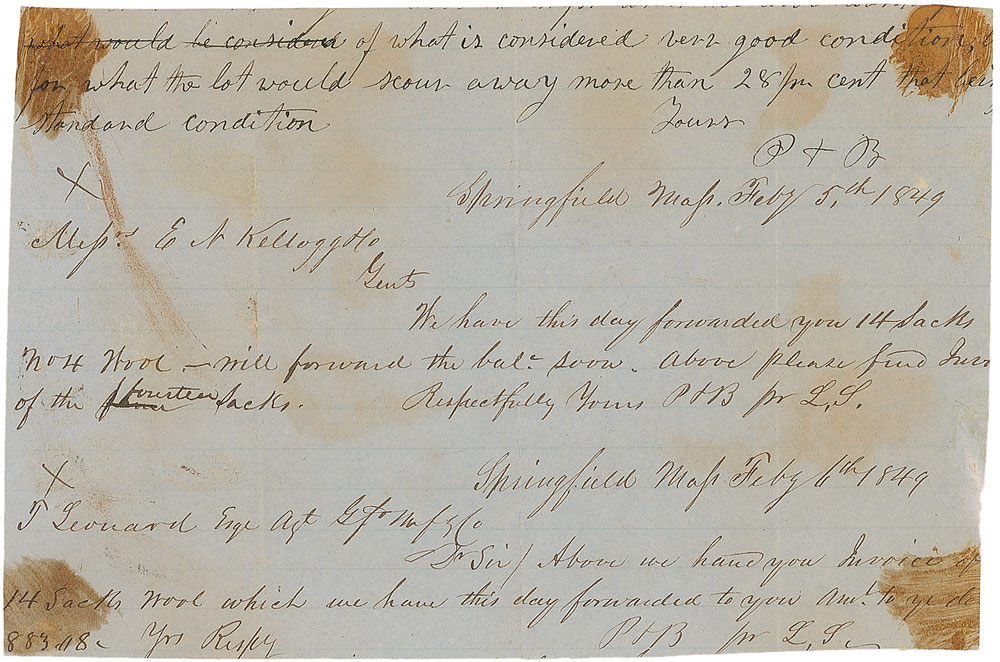 what would be considered of what is considered very good condition,
for what the lot would scour away more than 28 pr cent that being
standard condition Yours
P + B
X Springfield Mass. Feby 5,th 1849
Messrs E N Kellogg & Co
Gents
We have this day forwarded you 14 Sacks
No 4 Wool – will forward the balc soon. Above please find Invo
of the fourteen Sacks. Respectfully Yours P + B pr L, S.
X Springfield Mass Feby 6th 1849
T Leonard Esqr Agt Mnfg Co
Dr Sir / Above we hand you Invoice of
14 Sacks Wool which we have this day forwarded to you Amt to yr de
883.18 Yrs Respy P + B pr L, S.